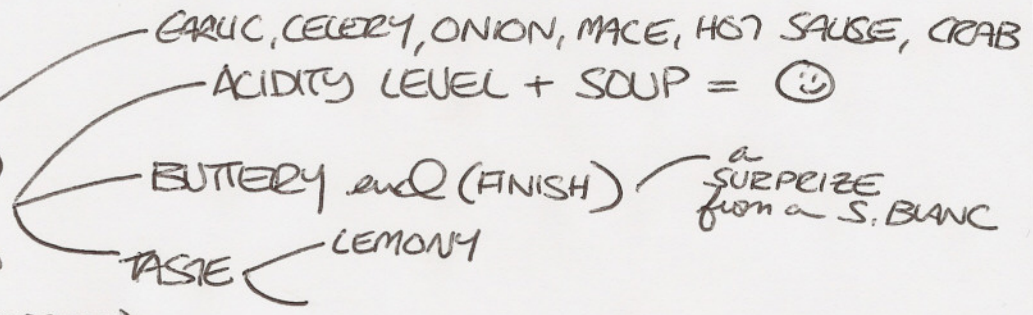 GARLIC, CELERY, ONION, MACE, HOT SAUSE, CRAB
ACIDITY LEVEL + SOUP = ☺
BUTTERY end (FINISH)
a
SURPRIZE
from a S. BLANC
TASTE
LEMONY